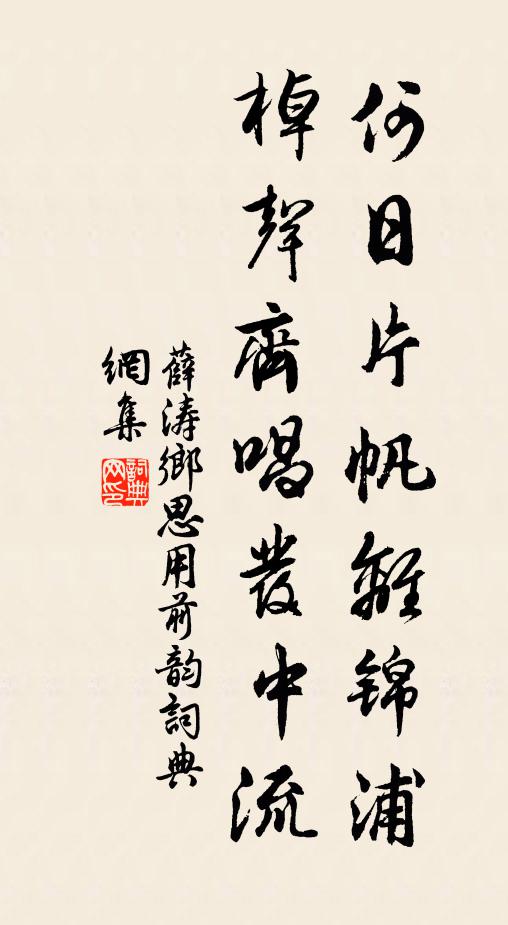 何日片帆離錦浦
棹聲齊唱發中流
薛濤鄉思用前韵詞典
網集
詞典網印